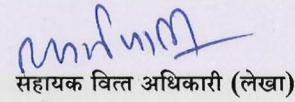 सहायक वित्त अधिकारी (लेखा)